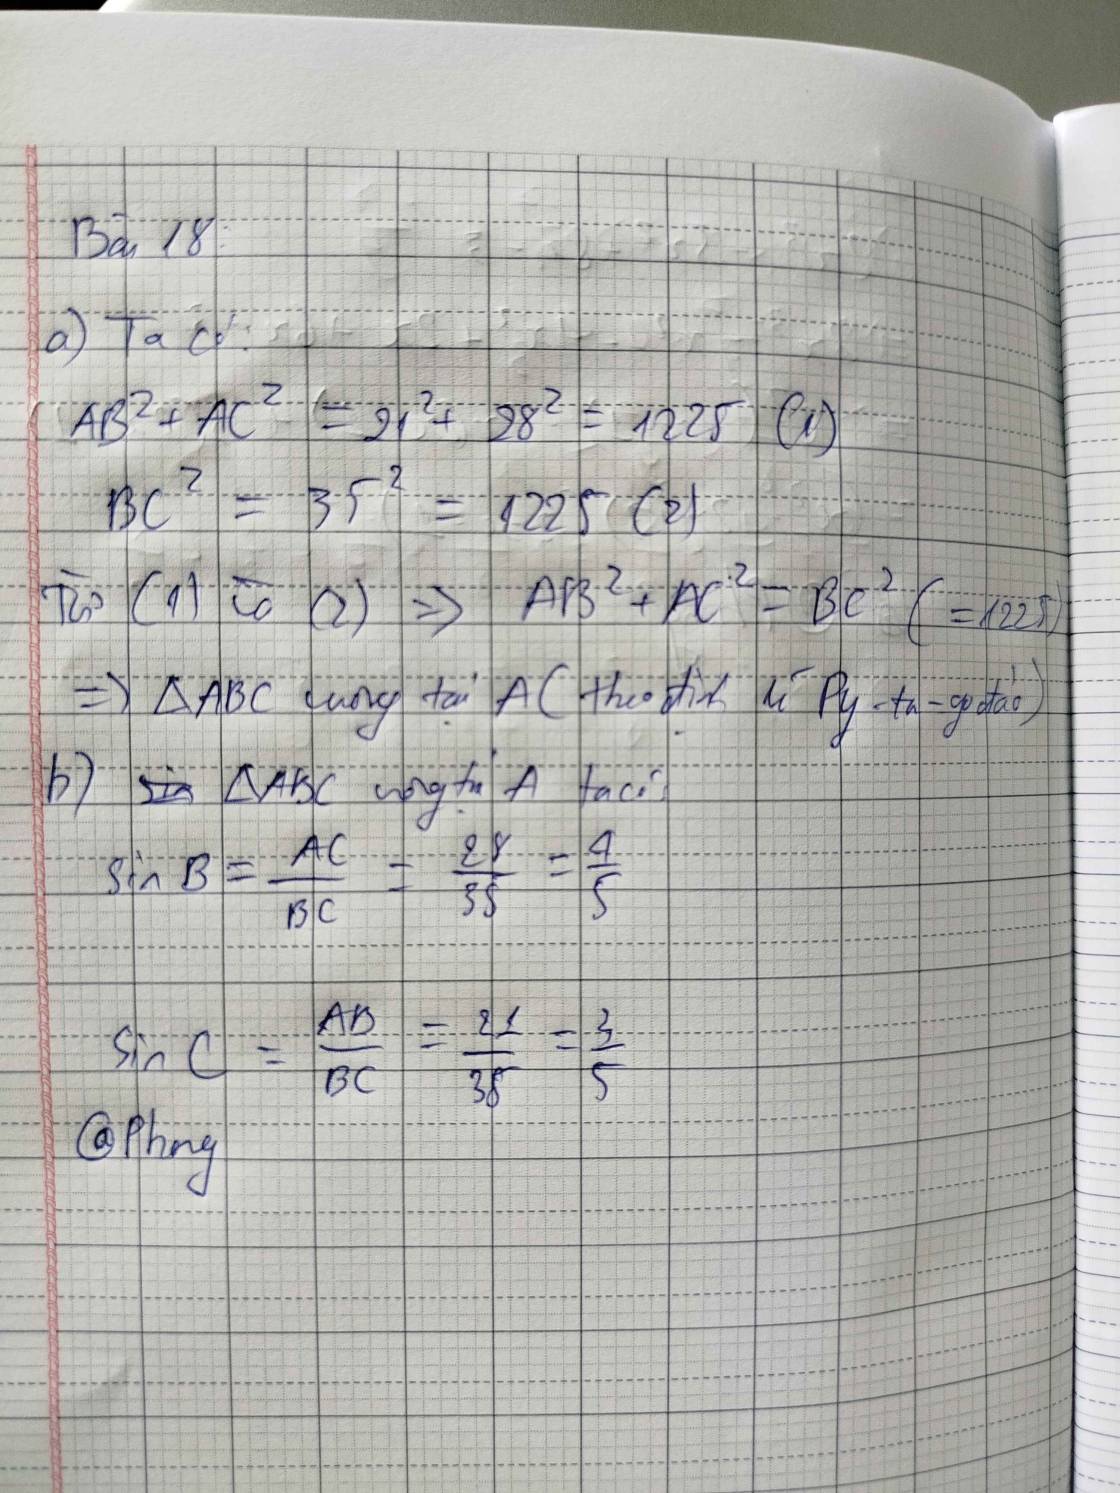 Bài 18:
a) Ta có:
AB² + AC² = 21² + 28² = 1225 (1)
BC² = 35² = 1225 (2)
Từ (1) và (2) => AB² + AC² = BC² (=1225)
=> △ABC vuông tại A (theo định lí Py-ta-go đảo)
b) △ABC vuông tại A ta có:
sin B = AC/BC = 28/35 = 4/5
sin C = AB/BC = 21/35 = 3/5
@Phong